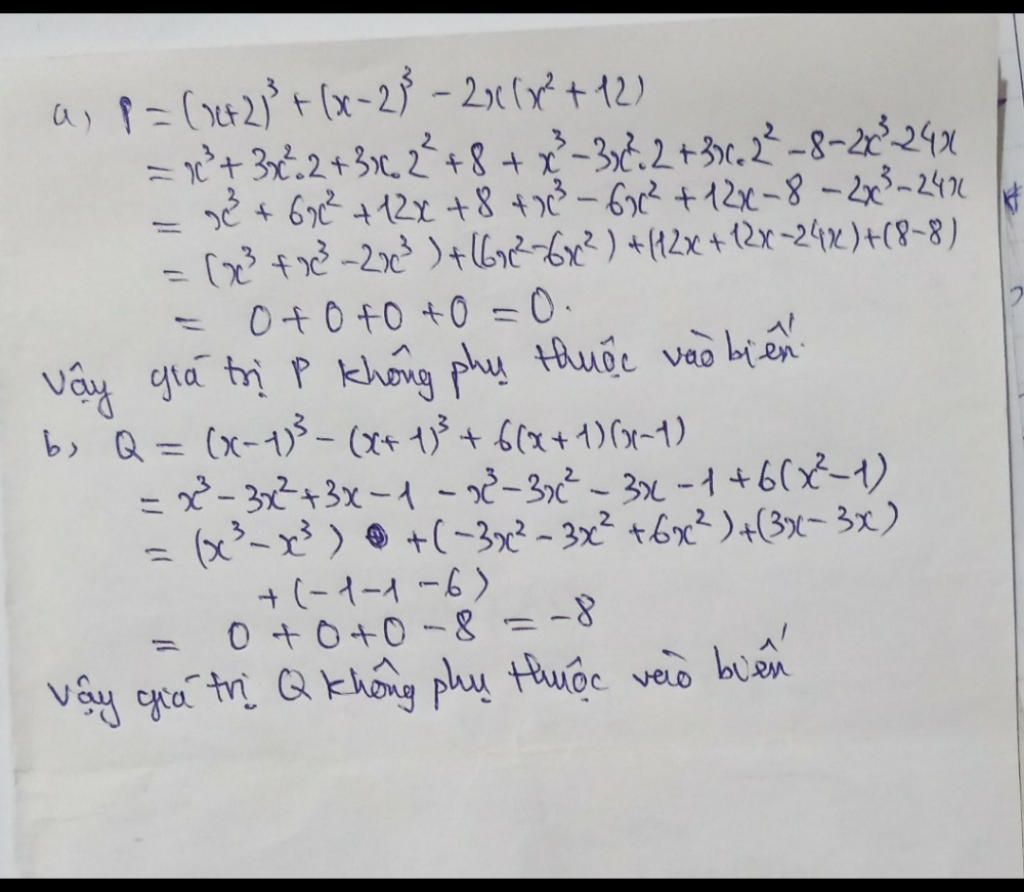 a, P = (x+2)³ + (x-2)³ - 2x(x² + 12)
= x³ + 3x².2 + 3x.2² + 8 + x³ - 3x².2 + 3x.2² - 8 - 2x³ - 24x
= x³ + 6x² + 12x + 8 + x³ - 6x² + 12x - 8 - 2x³ - 24x
= (x³ + x³ - 2x³) + (6x² - 6x²) + (12x + 12x - 24x) + (8-8)
= 0 + 0 + 0 + 0 = 0.
Vậy giá trị P không phụ thuộc vào biến.
b, Q = (x-1)³ - (x+1)³ + 6(x+1)(x-1)
= x³ - 3x² + 3x - 1 - x³ - 3x² - 3x - 1 + 6(x² - 1)
= (x³ - x³) + (-3x² - 3x² + 6x²) + (3x - 3x)
+ (-1-1-6)
= 0 + 0 + 0 - 8 = -8
Vậy giá trị Q không phụ thuộc vào biến